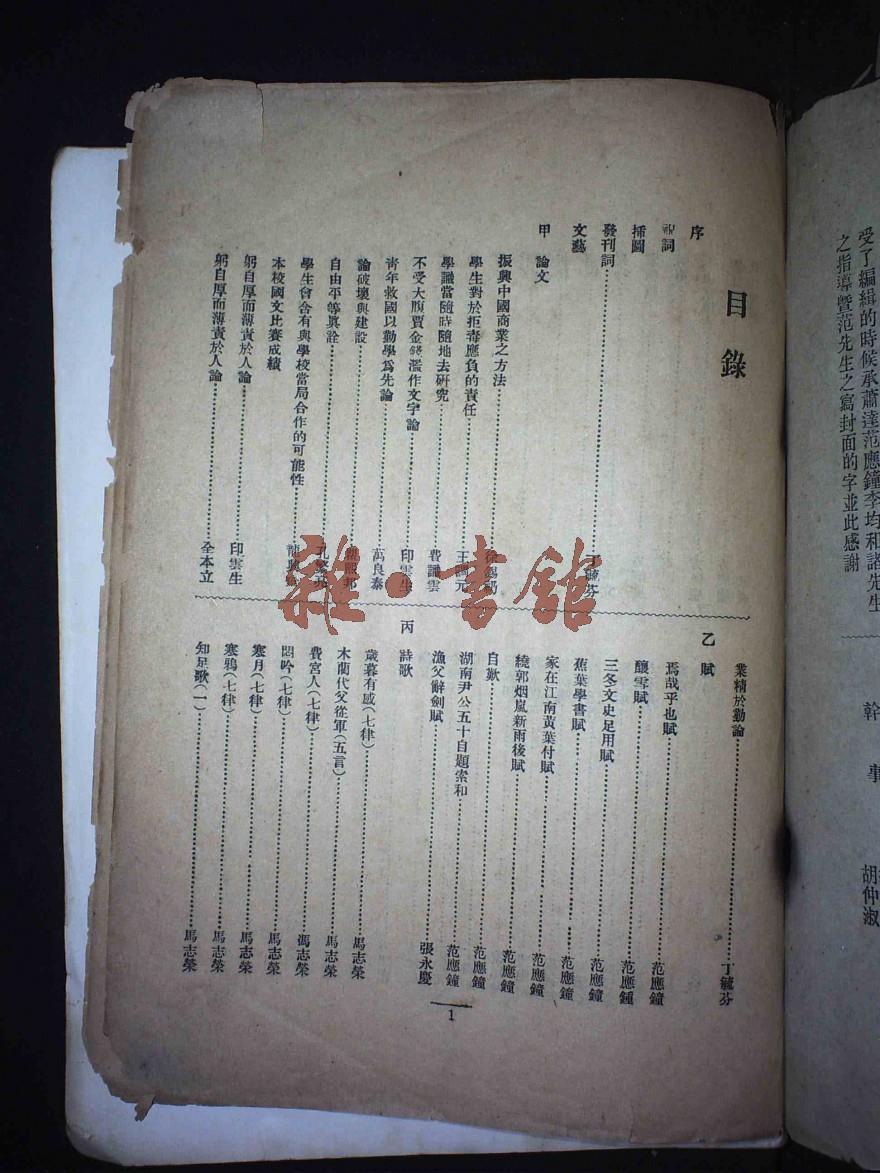 目錄
序
祝詞
插圖
發刊詞 丁毓芬
文藝
甲 論文
振興中國商業之方法
學生對於拒毒應負的責任 王
學識當隨時隨地去研究 費謙雲
不受大腹賈金錢濫作文字論 印雲生
青年救國以勤學爲先論 萬良泰
論破壞與建設
自由平等眞詮 孔
學生會含有與學校當局合作的可能性
本校國文比賽成績
躬自厚而薄責於人論 印雲生
躬自厚而薄責於人論 全本立
業精於勤論 丁毓芬
乙 賦
焉哉乎也賦 范應鐘
釀雪賦 范應鍾
三冬文史足用賦 范應鐘
蕉葉學書賦 范應鐘
家在江南黃葉付賦 范應鐘
繞郭烟嵐新雨後賦 范應鐘
自歎 范應鐘
湖南尹公五十自題索和 范應鐘
漁父辭劍賦 張永慶
丙 詩歌
歲暮有感(七律) 馬志榮
木蘭代父從軍(五言) 馬志榮
費宮人(七律) 馮志榮
悶吟(七律) 馬志榮
寒月(七律) 馬志榮
寒鴉(七律) 馬志榮
知足歌(一) 馬志榮
1
受了編緝的時候承蕭達范應鐘李均和諸先生
之指導暨范先生之寫封面的字並此感謝
幹 事
胡仲淑
雜·書館